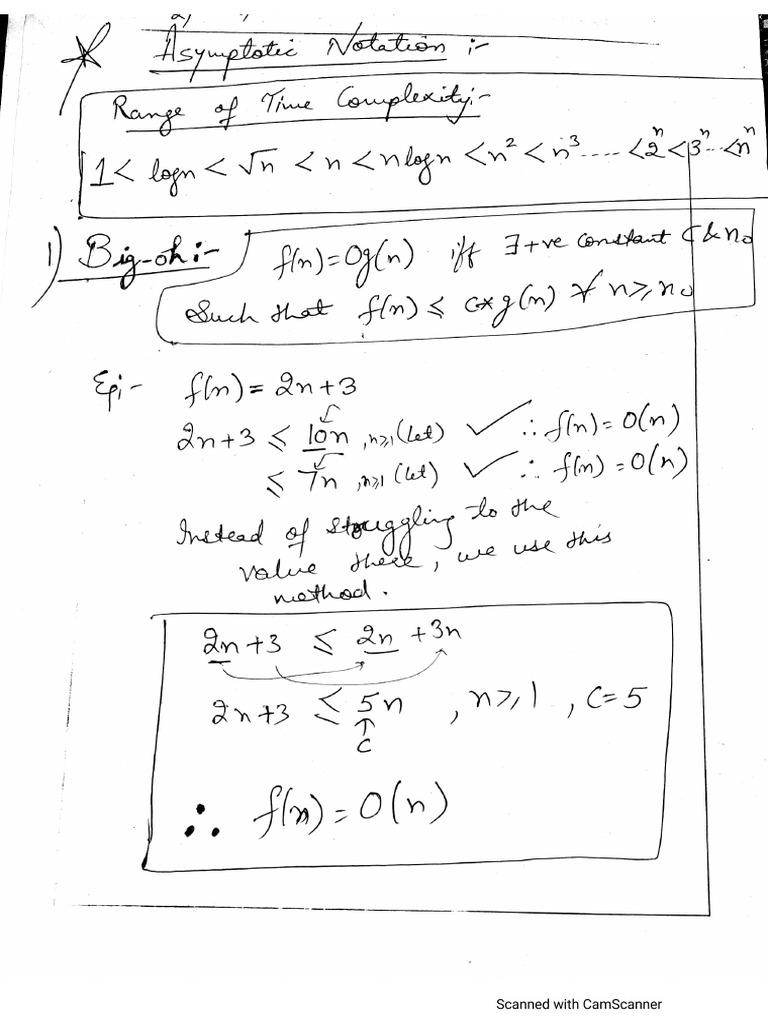 Asymptotic Notation :-
Range of Time Complexity:-
1 < logn < √n < n < nlogn < n² < n³ ..... < 2ⁿ < 3ⁿ .. < nⁿ
1) Big-oh :- f(n) = Og(n) iff ∃ +ve constant C & n₀
Such that f(n) ≤ c*g(n) ∀ n ≥ n₀
f(n) = 2n+3
2n+3 ≤ 10n , n≥1 (let) ✓ ∴ f(n) = O(n)
≤ 7n , n≥1 (let) ✓ ∴ f(n) = O(n)
Instead of struggling to the
value there, we use this
method.
2n+3 ≤ 2n +3n
2n+3 ≤ 5n , n≥1 , C=5
↑
C
∴ f(n) = O(n)
Scanned with CamScanner